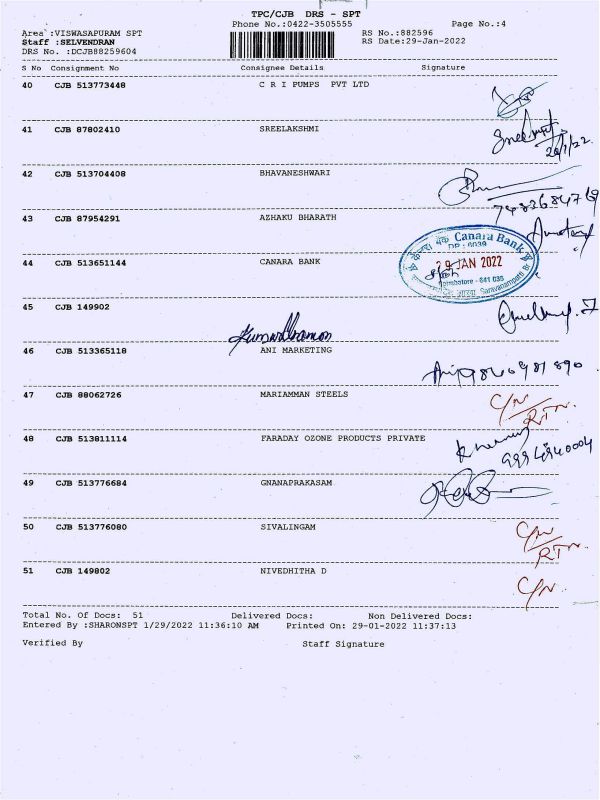 TPC/CJB DRS - SPT
Phone No.:0422-3505555 Page No.:4
Area :VISWASAPURAM SPT RS No.:882596
Staff :SELVENDRAN RS Date:29-Jan-2022
DRS No. :DCJB88259604
S No Consignment No Consignee Details Signature
40 CJB 513773448 C R I PUMPS PVT LTD
41 CJB 87802410 SREELAKSHMI
29/1/22.
42 CJB 513704408 BHAVANESHWARI
7482684769
43 CJB 87954291 AZHAKU BHARATH
केनरा बैंक Canara Bank
DP : 6039
44 CJB 513651144 CANARA BANK
29 JAN 2022
Coimbatore - 641 035
Saravanampatti Br
45 CJB 149902
46 CJB 513365118 ANI MARKETING
9840981890
47 CJB 88062726 MARIAMMAN STEELS
C/N
RTN.
48 CJB 513811114 FARADAY OZONE PRODUCTS PRIVATE
49 CJB 513776684 GNANAPRAKASAM
50 CJB 513776080 SIVALINGAM
C/N
RTN.
51 CJB 149802 NIVEDHITHA D
C/N.
Total No. Of Docs: 51 Delivered Docs: Non Delivered Docs:
Entered By :SHARONSPT 1/29/2022 11:36:10 AM Printed On: 29-01-2022 11:37:13
Verified By Staff Signature